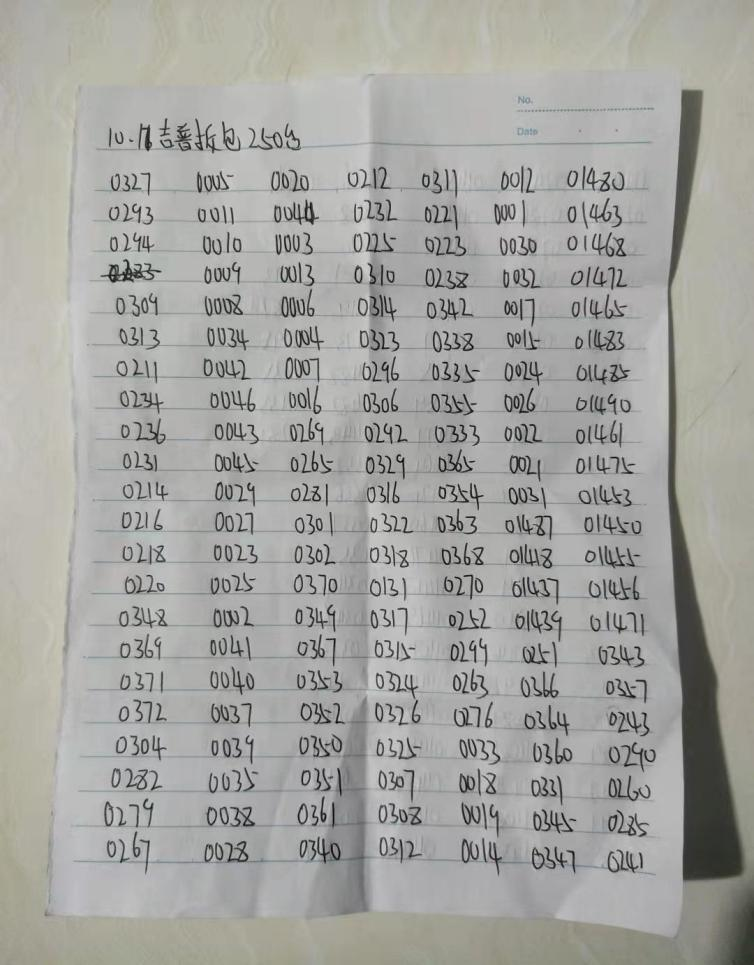 No.
Date
10.11吉普拆包250台
0327 0005 0020 0212 0311 0012 01480
0293 0011 0044 0232 0221 0001 01463
0294 0010 0003 0225 0223 0030 01468
0009 0013 0310 0238 0032 01472
0309 0008 0006 0314 0342 0017 01465
0313 0034 0004 0323 0338 0015 01483
0211 0042 0007 0296 0335 0024 01485
0234 0046 0016 0306 0355 0026 01490
0236 0043 0269 0292 0333 0022 01461
0231 0045 0265 0329 0365 0021 01475
0214 0029 0281 0316 0354 0031 01453
0216 0027 0301 0322 0363 01487 01450
0218 0023 0302 0318 0368 01418 01455
0220 0025 0370 0131 0270 01437 01456
0348 0002 0349 0317 0252 01439 01471
0369 0041 0367 0315 0299 0251 0343
0371 0040 0353 0324 0263 0366 0357
0372 0037 0352 0326 0276 0364 0243
0304 0039 0350 0325 0033 0360 0290
0282 0035 0351 0307 0018 0331 0260
0279 0038 0361 0308 0019 0345 0285
0267 0028 0340 0312 0014 0347 0241